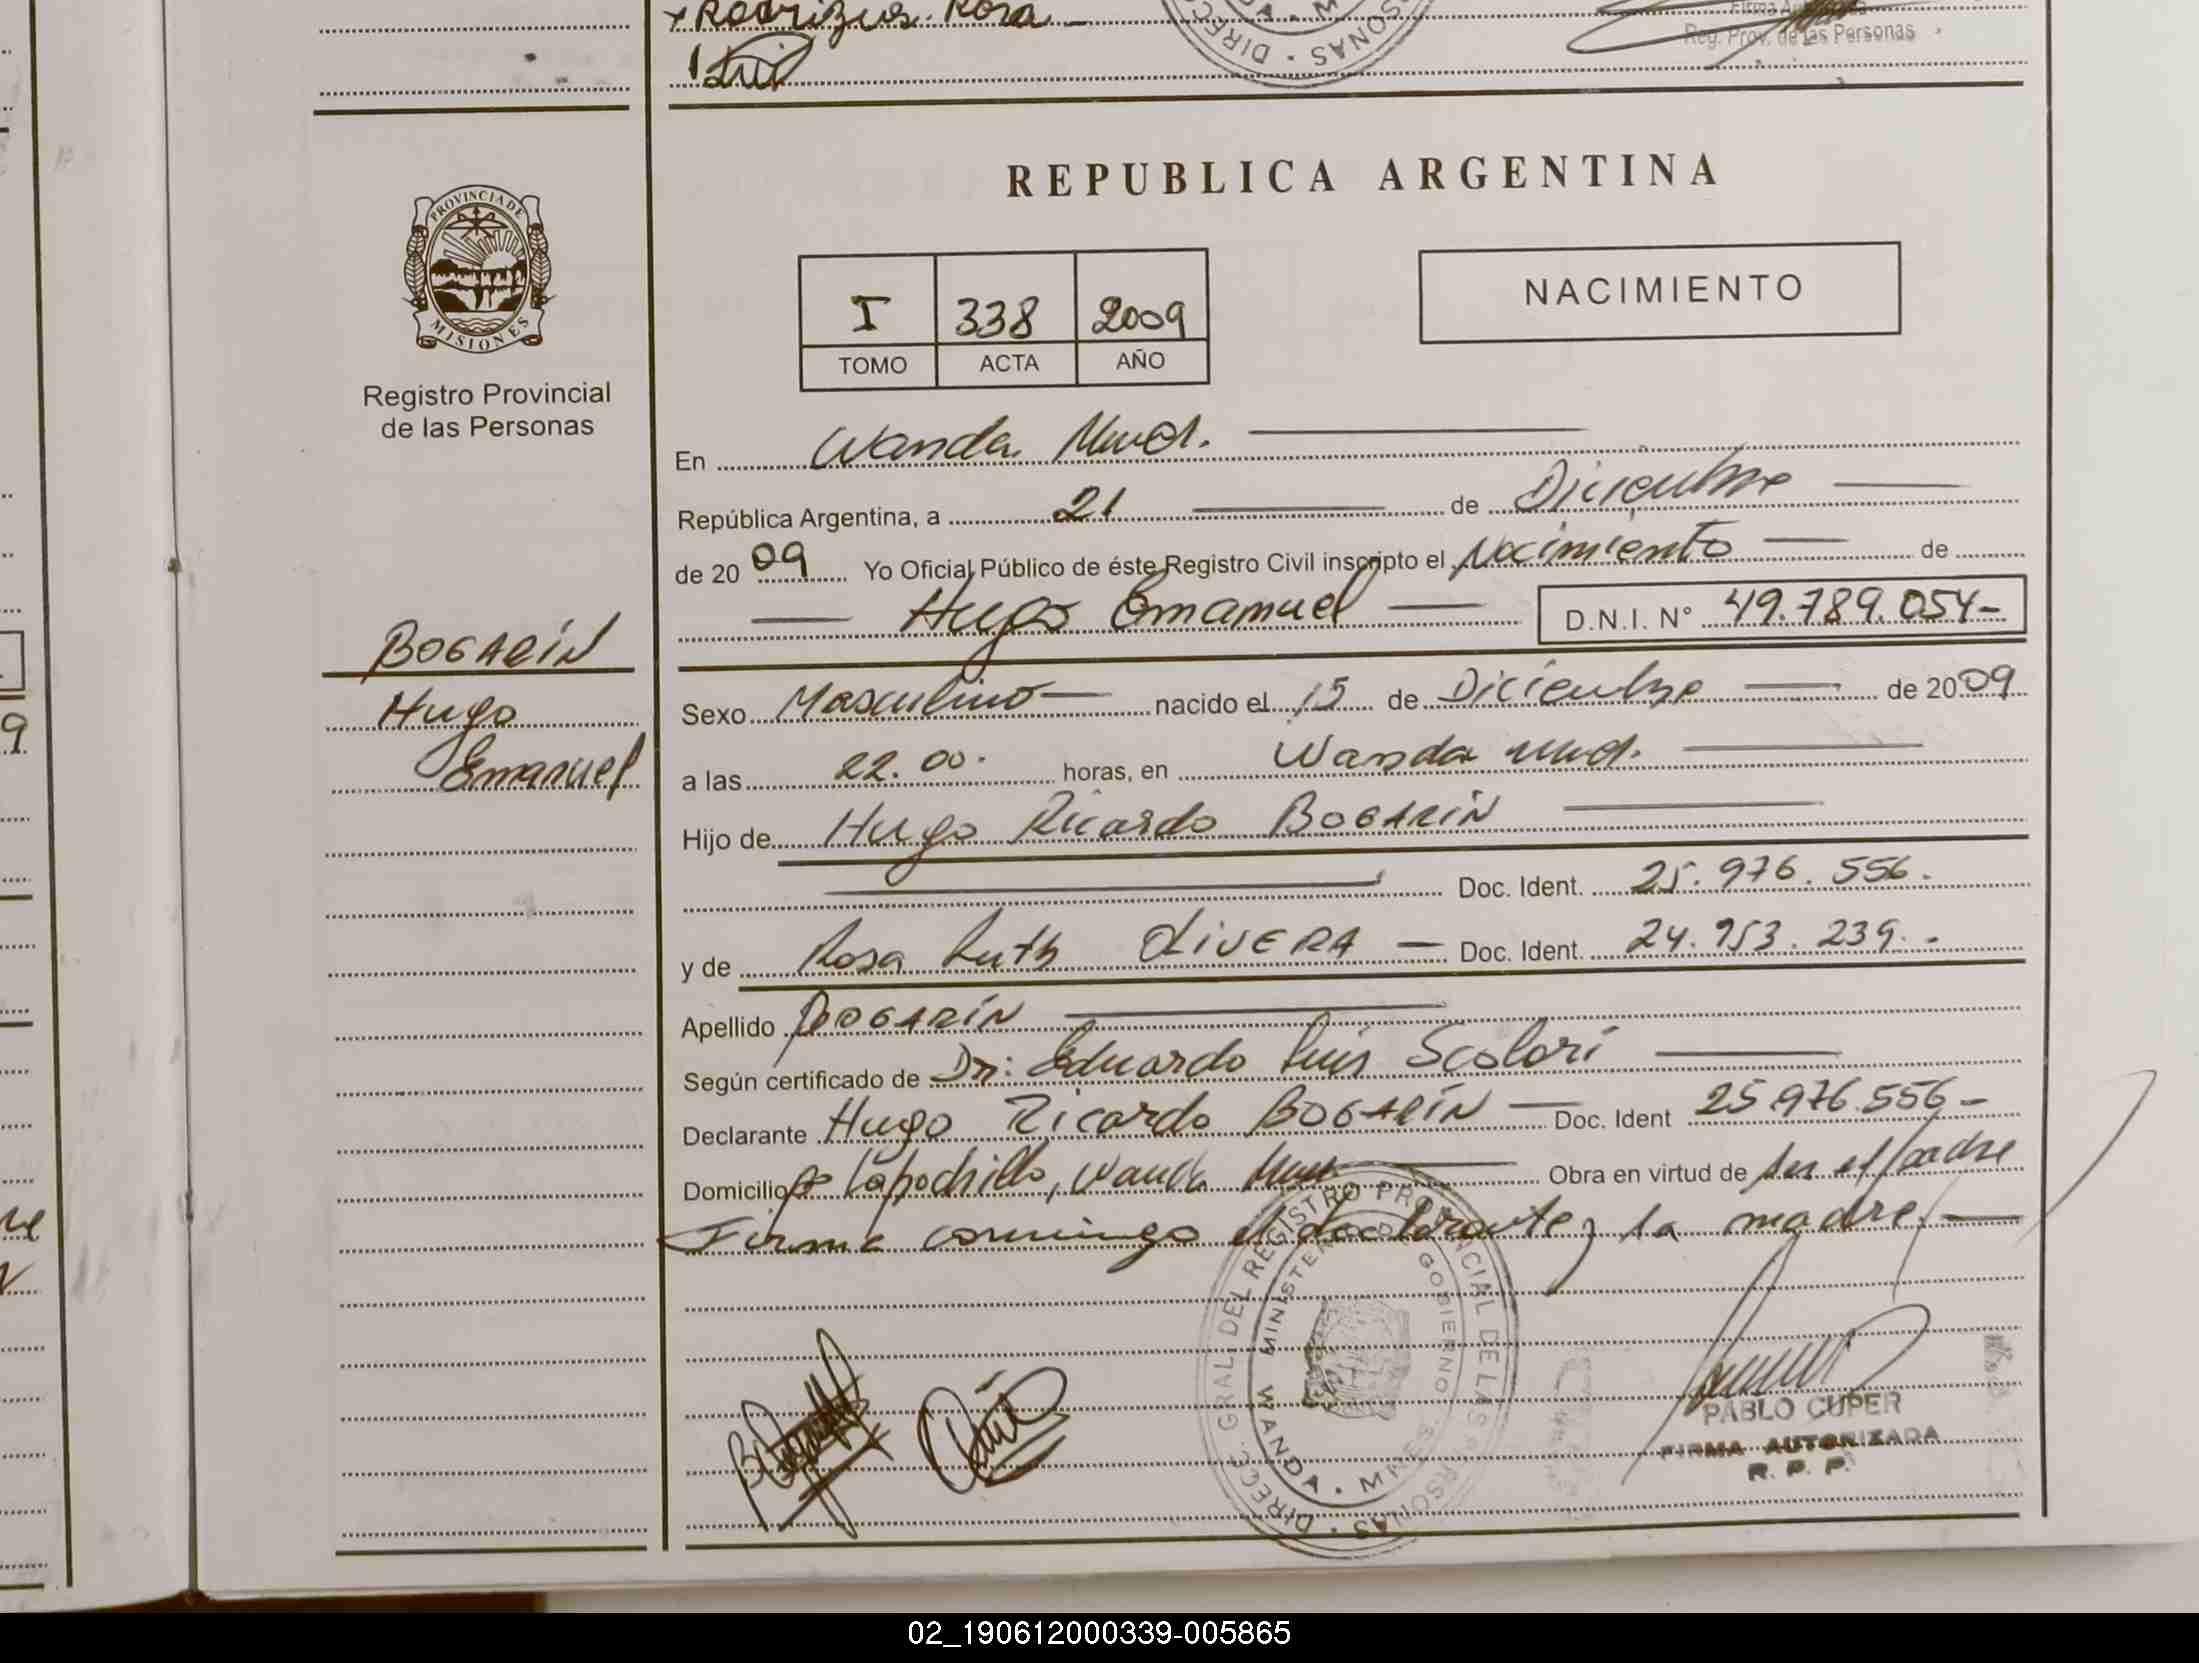 x Rodriguez Rosa
Firma Autorizada
Reg. Prov. de las Personas
PROVINCIA DE
MISIONES
Registro Provincial
de las Personas
REPUBLICA ARGENTINA
I 338 2009
TOMO ACTA AÑO
NACIMIENTO
En Wanda Mnes.
República Argentina, a 21 de Diciembre
de 2009 Yo Oficial Público de éste Registro Civil inscripto el Nacimiento de
Hugo Emanuel D.N.I. N° 49.789.054-
BOGARÍN
Hugo
Emanuel
Sexo Masculino nacido el 15 de Diciembre de 2009
a las 22.00. horas, en Wanda Mnes.
Hijo de Hugo Ricardo BOGARIN
Doc. Ident. 25.976.556.
y de Rosa Ruth OLIVERA Doc. Ident. 24.953.239.-
Apellido BOGARÍN
Según certificado de Dr: Eduardo Luis Scolari
Declarante Hugo Ricardo BOGARÍN Doc. Ident 25.976.556-
Domicilio Wanda Mnes Obra en virtud de ser el padre
Firma conmigo el declarante y la madre.
DIREC. GRAL. DEL REGISTRO PROVINCIAL DE LAS PERSONAS
MINISTERIO DE GOBIERNO
WANDA - MNES.
PABLO CUPER
FIRMA AUTORIZADA
R. P. P.
02_190612000339-005865